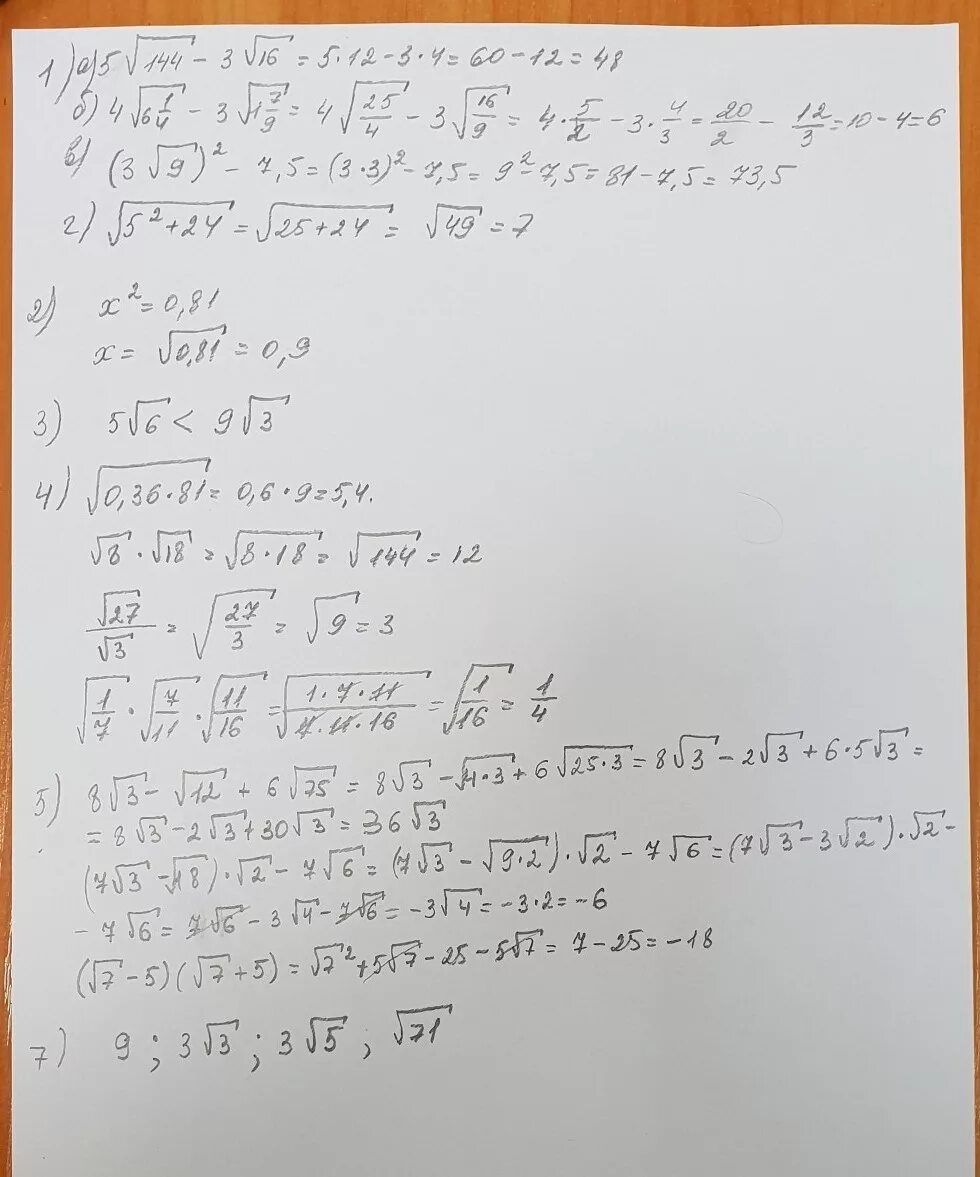 1) а) 5√144 - 3√16 = 5·12 - 3·4 = 60 - 12 = 48
б) 4√6 1/4 - 3√1 7/9 = 4√25/4 - 3√16/9 = 4·5/2 - 3·4/3 = 20/2 - 12/3 = 10 - 4 = 6
в) (3√9)² - 7,5 = (3·3)² - 7,5 = 9² - 7,5 = 81 - 7,5 = 73,5
г) √5² + 24 = √25 + 24 = √49 = 7
2) x² = 0,81
x = √0,81 = 0,9
3) 5√6 < 9√3
4) √0,36·81 = 0,6·9 = 5,4.
√8 · √18 = √8·18 = √144 = 12
√27/√3 = √27/3 = √9 = 3
√1/7 · √7/11 · √11/16 = √1·7·11/7·11·16 = √1/16 = 1/4
5) 8√3 - √12 + 6√75 = 8√3 - √4·3 + 6√25·3 = 8√3 - 2√3 + 6·5√3 =
= 8√3 - 2√3 + 30√3 = 36√3
(7√3 - √18)·√2 - 7√6 = (7√3 - √9·2)·√2 - 7√6 = (7√3 - 3√2)·√2 -
- 7√6 = 7√6 - 3√4 - 7√6 = -3√4 = -3·2 = -6
(√7 - 5)(√7 + 5) = √7² + 5√7 - 25 - 5√7 = 7 - 25 = -18
7) 9 ; 3√3 ; 3√5 ; √71